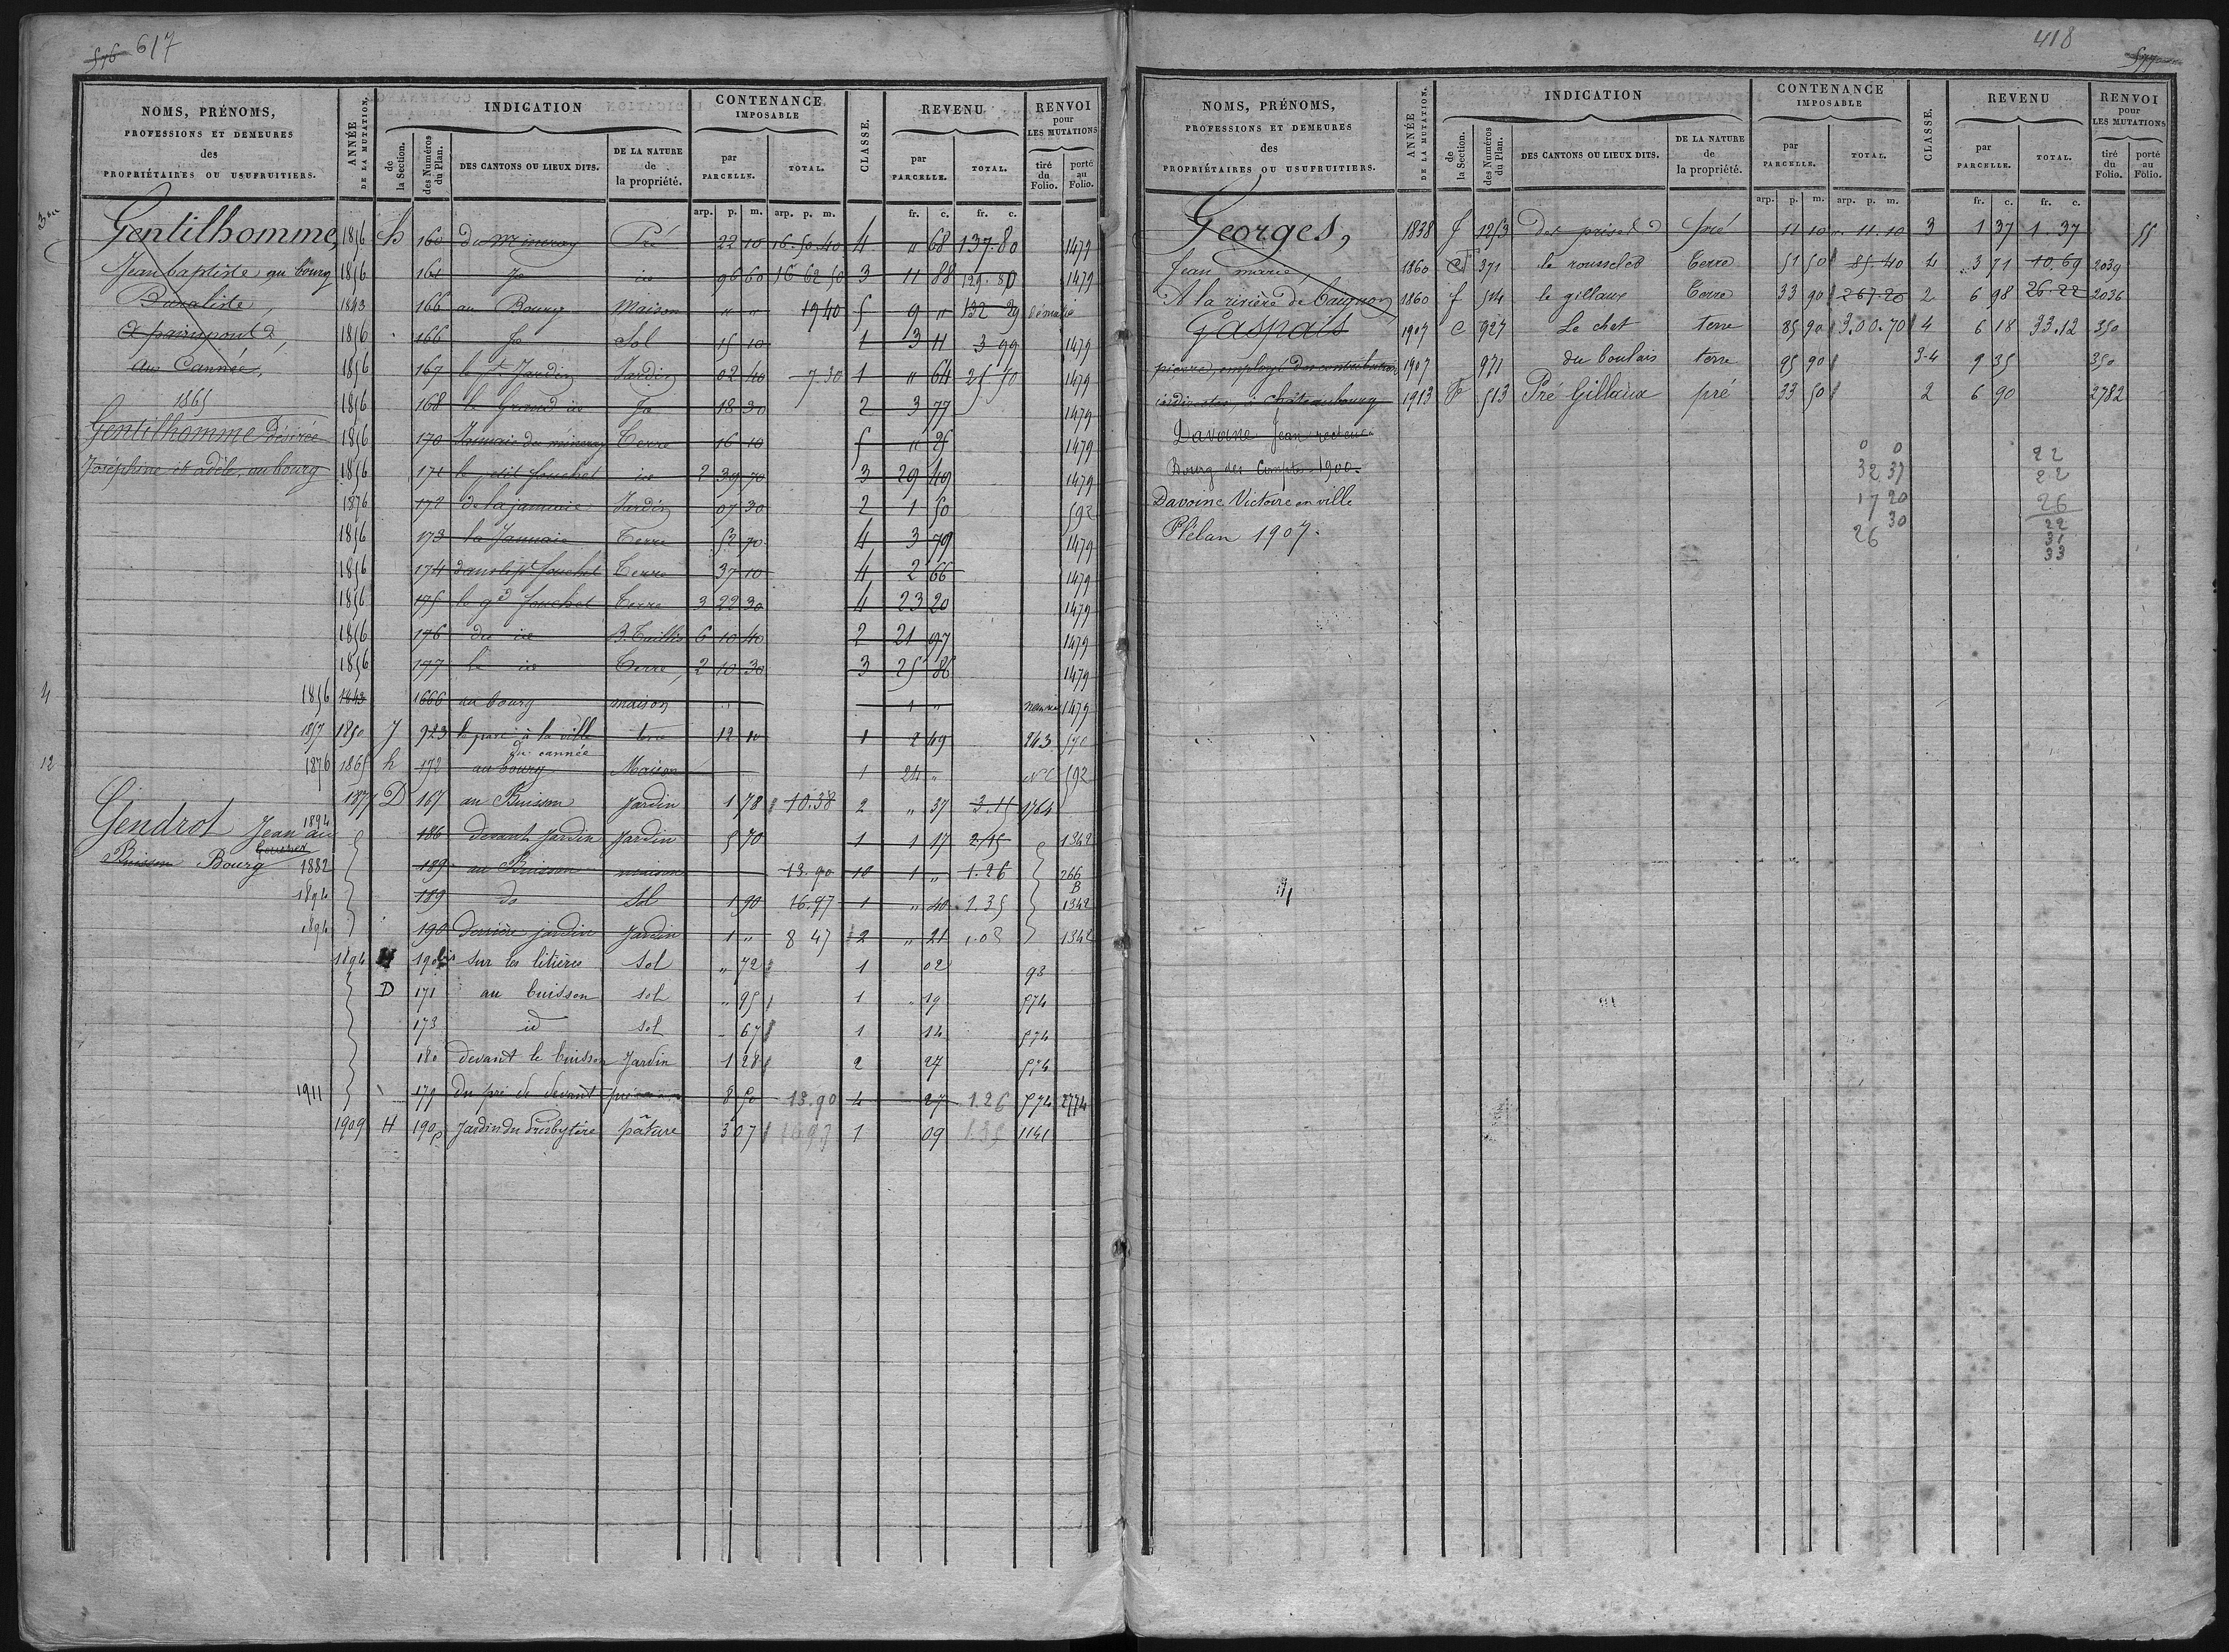 576 617
NOMS, PRÉNOMS, PROFESSIONS ET DEMEURES des PROPRIÉTAIRES OU USUFRUITIERS. ANNÉE DE LA MUTATION. INDICATION de la Section. des Numéros du Plan. DES CANTONS OU LIEUX DITS. DE LA NATURE de la propriété. CONTENANCE IMPOSABLE par PARCELLE. TOTAL. CLASSE. REVENU par PARCELLE. TOTAL. RENVOI pour LES MUTATIONS tiré du Folio. porté au Folio.
arp. p. m. arp. p. m. fr. c. fr. c.
Gentilhomme, 1856 h 160 du Mineray Pré 22 10 16.50.40 4 " 68 137.80 1479
Jean baptiste, au bourg 1856 161 do id 96 60 16 62 50 3 11 88 139.80 1479
Buraliste, 1843 166 au Bourg Maison " " 1940 5 9 " 132 29 démolie
1856 166 do Sol 15 10 1 3 11 3 99 1479
au Cannée, 1856 167 le pt Jardin Jardin 02 40 7.30 1 " 64 25.50 1479
1865 1856 168 le Grand id do 18 30 2 3 77 1479
Gentilhomme Désirée 1856 170 Terre 16 10 5 " 25 1479
Joséphine et adèle, au bourg 1856 171 le petit fouchel id 2 39 70 3 29 49 1479
1876 172 de la jannaie Jardin 07 30 2 1 50 592
1856 173 la Jannaie Terre 52 70 4 3 79 1479
1856 174 dans le pt fouchel Terre 37 10 4 2 66 1479
1856 175 le gd fouchel Terre 3 22 30 4 23 20 1479
1856 176 du id B. Taillis 6 10 40 2 21 97 1479
1856 177 le id Terre 2 10 30 3 25 86 1479
4 1856 1843 1666 au bourg maison " 1 " 1479
1857 1850 J 923 le parc à la ville du cannée terre 12 10 1 2 49 243 570
12 1876 1865 h 172 au bourg Maison 1 24 " NC 592
1877 D 167 au Buisson Jardin 1 78 10.38 2 " 37 3.15 1764
Gendrot Jean au 1894 186 devant Jardin Jardin 5 70 1 1 17 2/15 1342
Buisson Bourg 1882 189 au Buisson maison 13.90 10 1 " 1.26 266
1894 189 do Sol 1 90 16.97 1 " 40 1.35 B 1342
1894 190 derrière jardin Jardin 1 " 8 47 2 " 21 1.03 1342
1894 H 190 bis sur les litières Sol " 72 1 02 93
D 171 au buisson sol " 95 1 " 19 574
173 id sol - 67 1 14 574
180 devant le buisson Jardin 1 28 2 27 574
1911 179 Du pré de devant pré 8 50 13.90 4 27 1.26 574 2774
1909 H 190p Jardin du Presbytère pâture 3 07 16.97 1 09 1.35 1141
418 577
NOMS, PRÉNOMS, PROFESSIONS ET DEMEURES des PROPRIÉTAIRES OU USUFRUITIERS. ANNÉE DE LA MUTATION. INDICATION de la Section. des Numéros du Plan. DES CANTONS OU LIEUX DITS. DE LA NATURE de la propriété. CONTENANCE IMPOSABLE par PARCELLE. TOTAL. CLASSE. REVENU par PARCELLE. TOTAL. RENVOI pour LES MUTATIONS tiré du Folio. porté au Folio.
arp. p. m. arp. p. m. fr. c. fr. c.
Georges, 1838 f 1253 des prisets pré 11 10 " 11.10 3 1 37 1.37 55
Jean marie, 1860 C 371 le rousselet Terre 51 50 85.40 4 3 71 10.69 2039
A la rivière de Caignon 1860 f 514 le gillaux Terre 33 90 267.20 2 6 98 26.22 2036
Gaspais 1907 C 927 Le chet terre 85 90 3.00.70 4 6 18 33.12 350
pierre, employé des contributions 1907 971 du boulais terre 95 90 3-4 9 35 350
indirectes, à Châteaubourg 1913 F 513 Pré Gillaux pré 33 50 2 6 90 2782
Davoine Jean recteur
Bourg des Comptes 1900.
Davoine Victoire en ville
Plélan 1907.
0 0
32 37
17 20
26 30
22
22
26
22
31
33